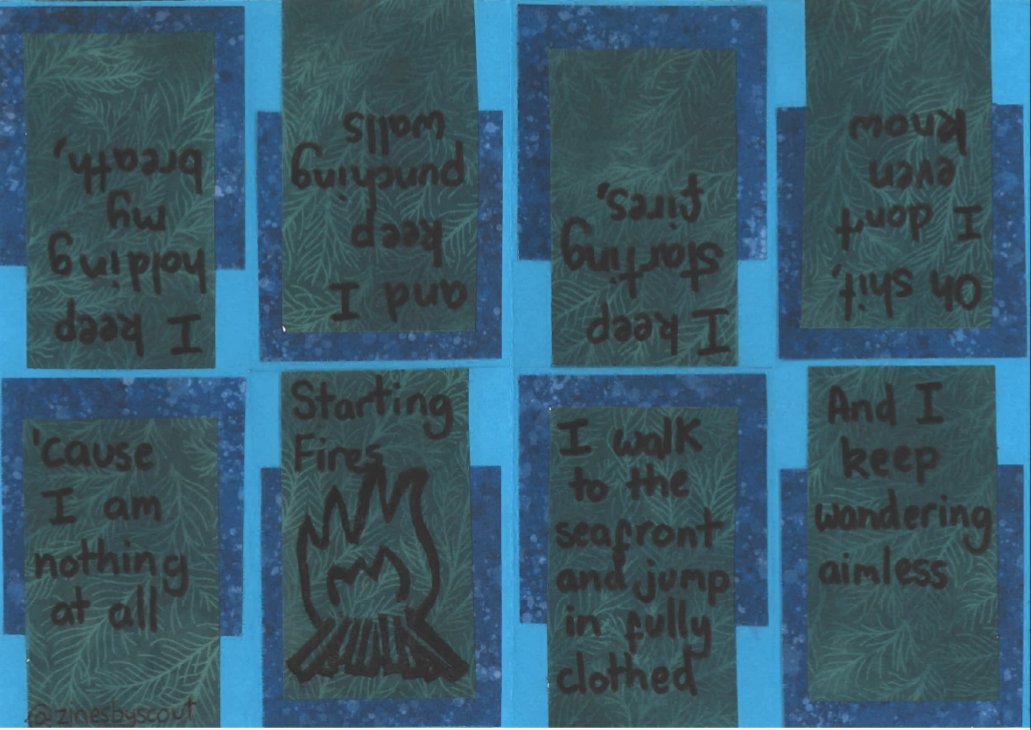 Starting
Fires
I walk
to the
seafront
and jump
in fully
clothed
And I
keep
wandering
aimless
Oh shit,
I don't
even
know
I keep
starting
fires,
and I
keep
punching
walls
I keep
holding
my
breath,
'cause
I am
nothing
at all
@zinesbyscout